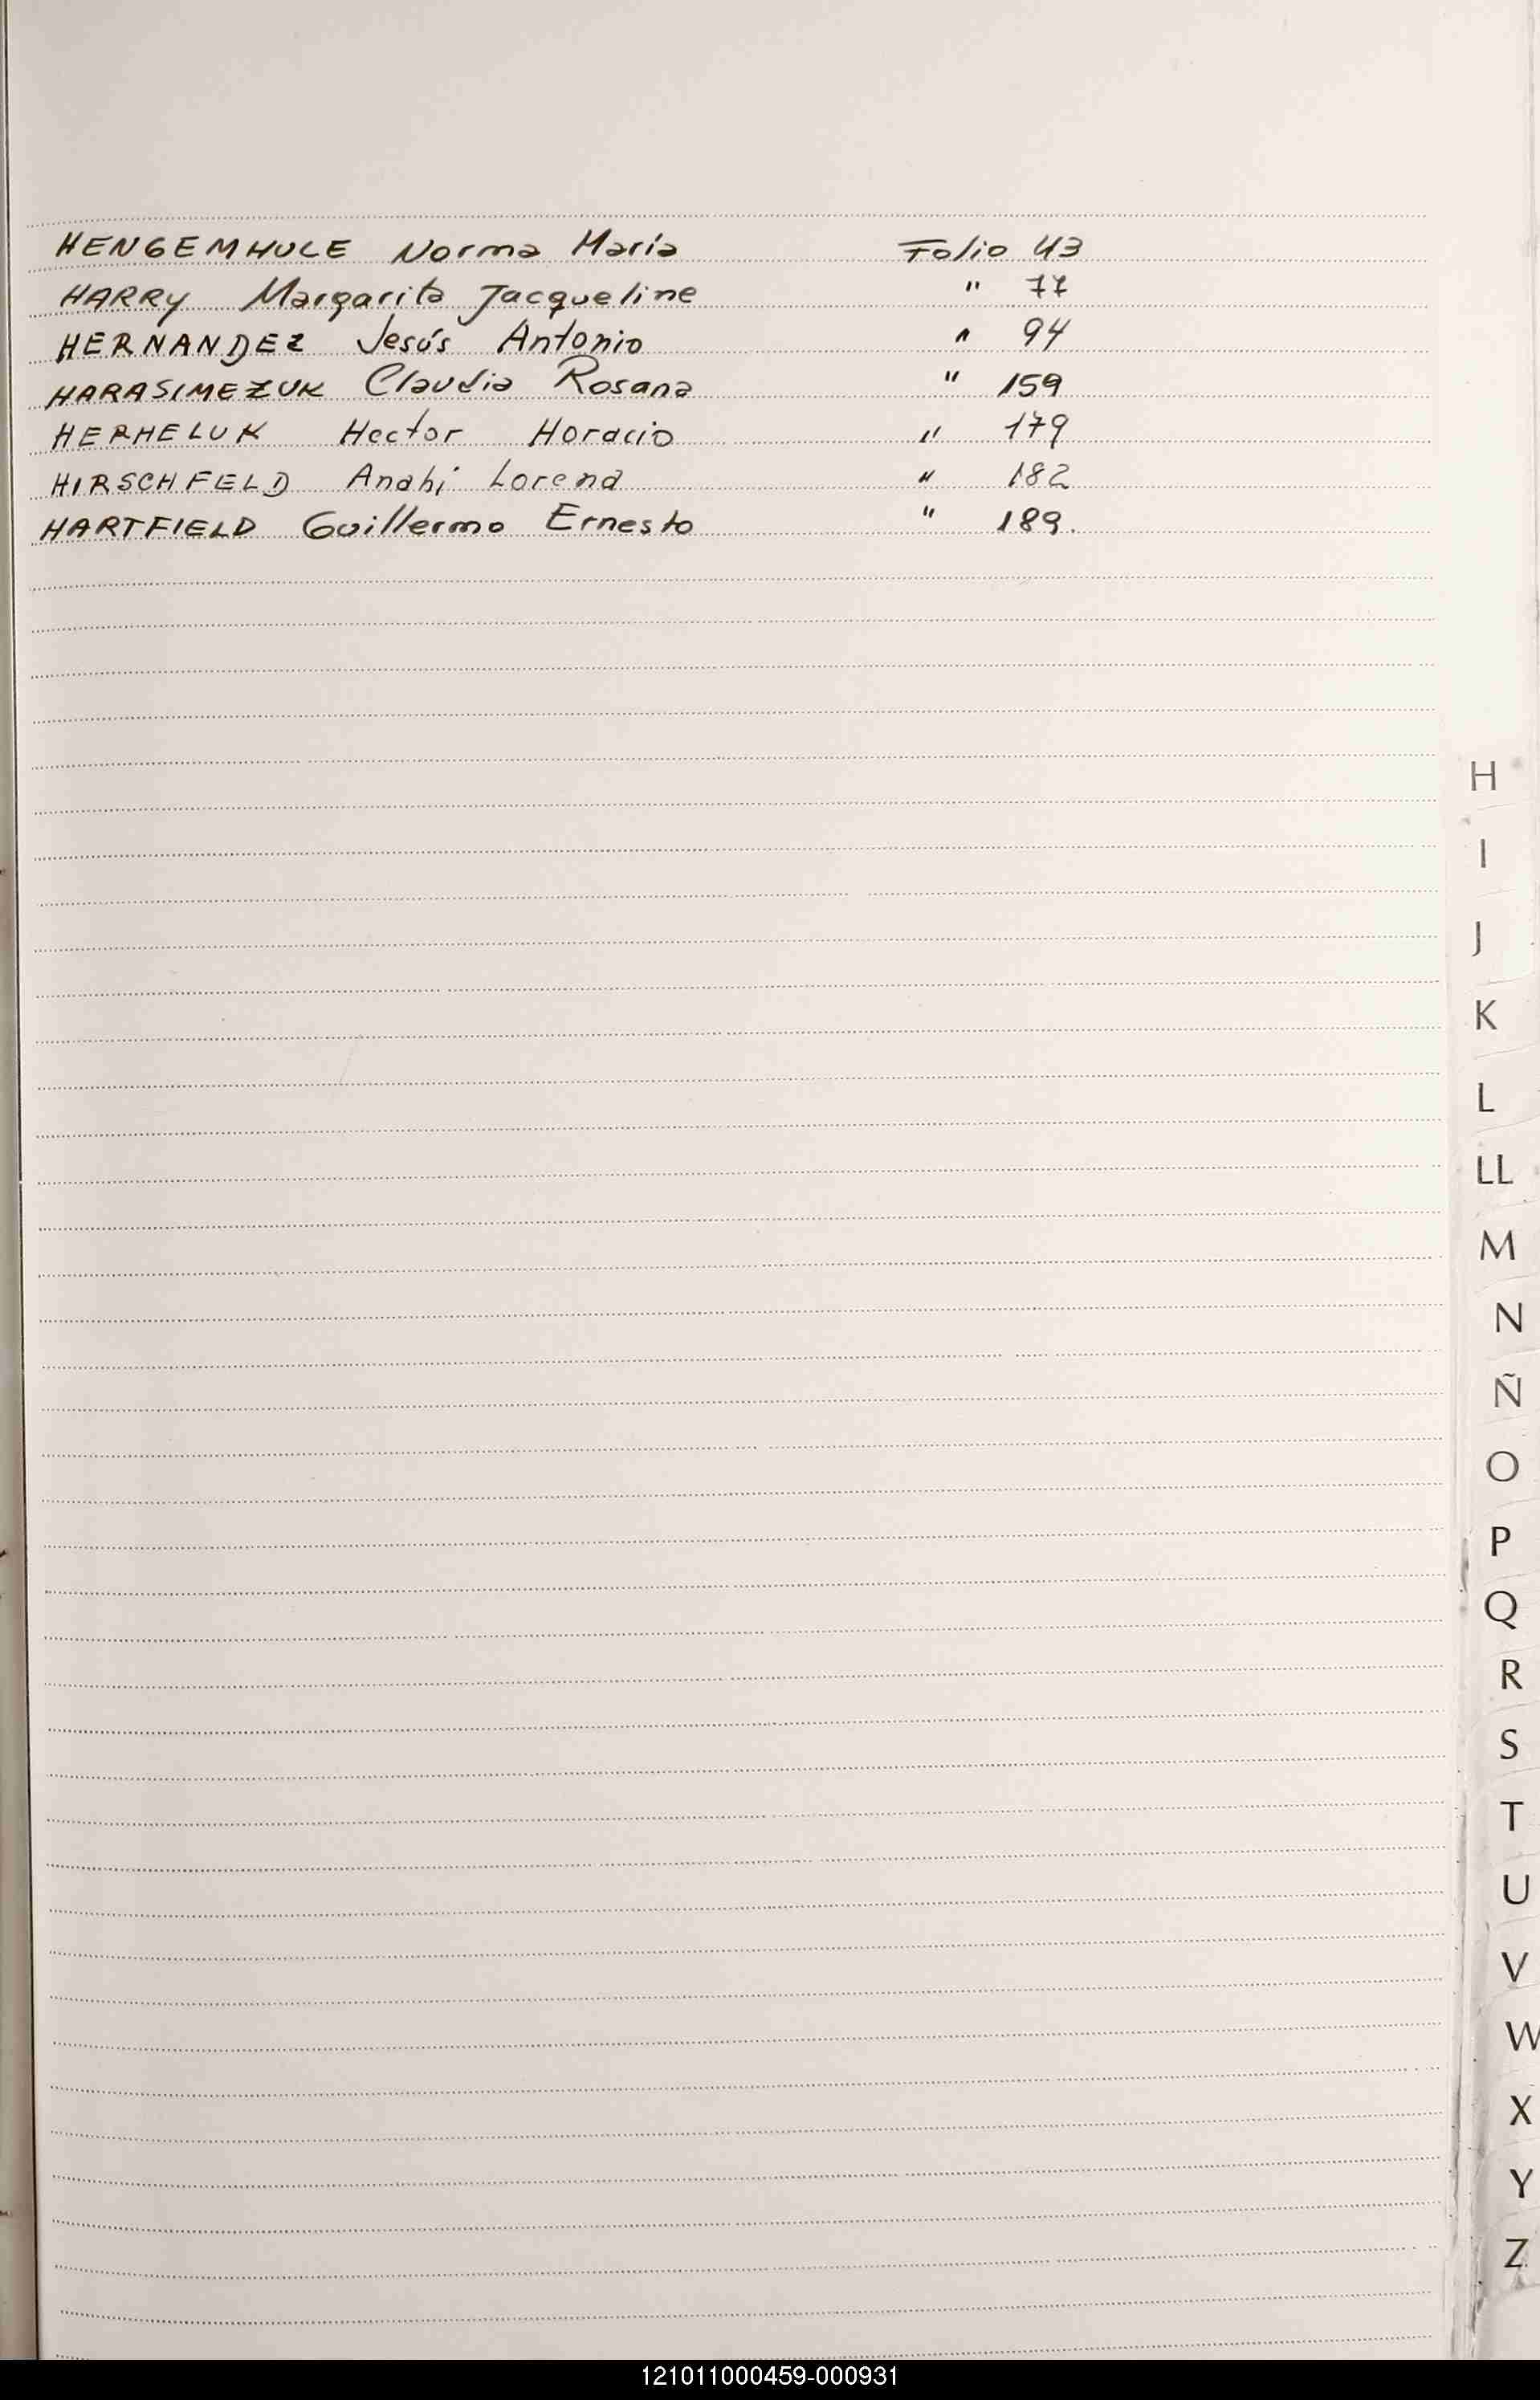 HENGEMHULE Norma María Folio 43
HARRY Margarita Jacqueline " 77
HERNANDEZ Jesús Antonio " 94
HARASIMEZUK Claudia Rosana " 159
HERHELUK Hector Horacio " 179
HIRSCHFELD Anahi Lorena " 182
HARTFIELD Guillermo Ernesto " 189.
H
I
J
K
L
LL
M
N
Ñ
O
P
Q
R
S
T
U
V
W
X
Y
Z
121011000459-000931